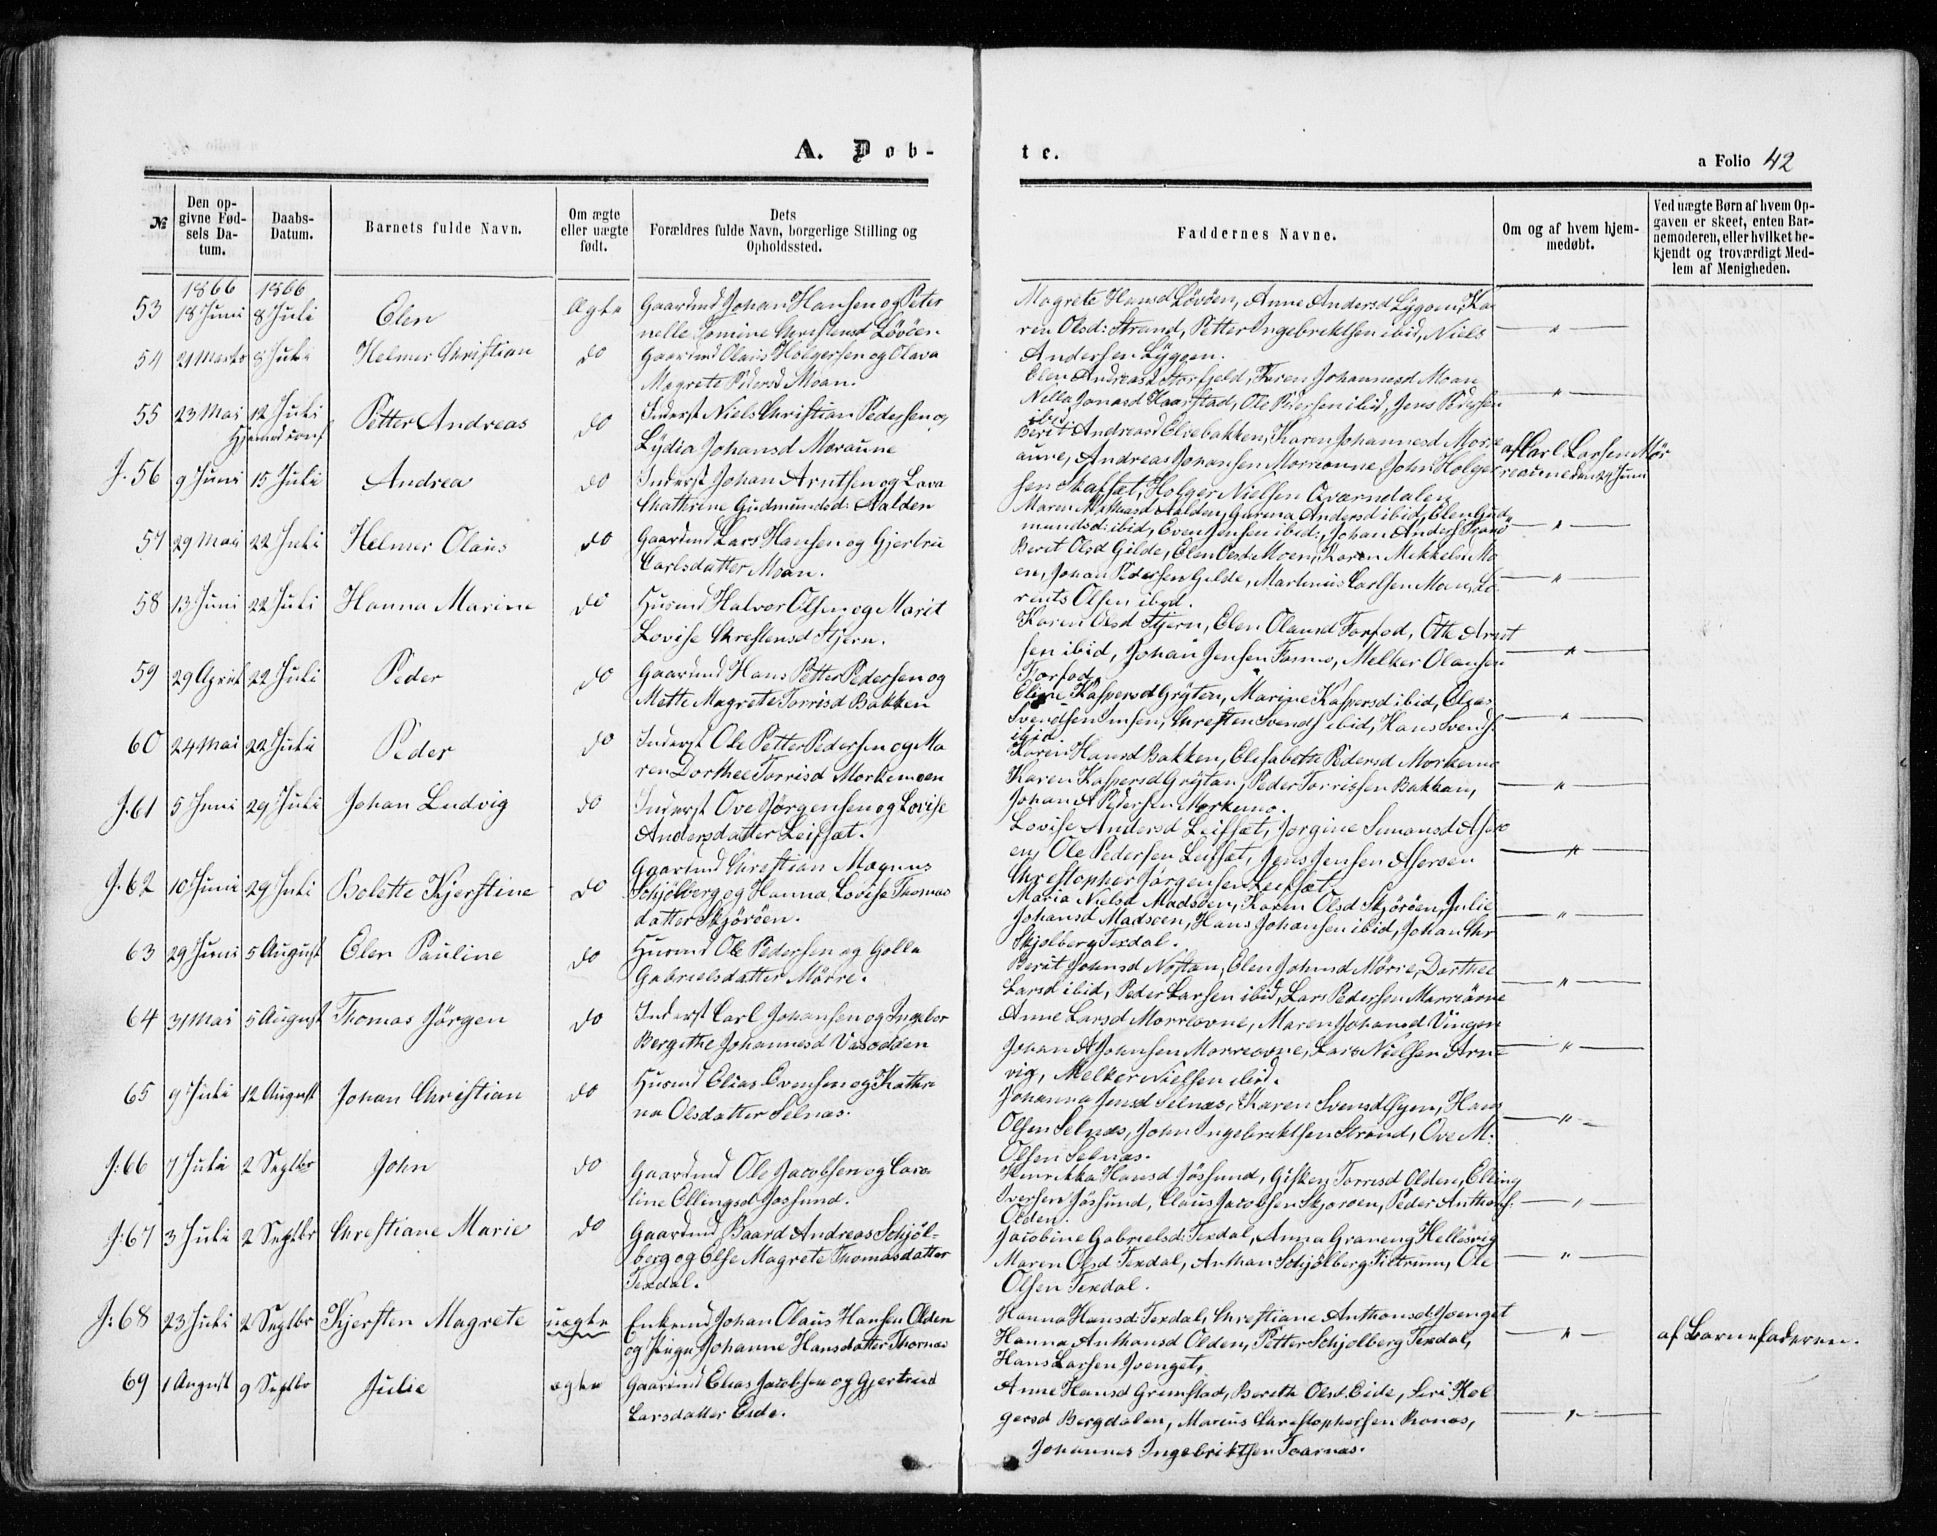 A. Døb-
te.
a Folio 42
№
Den opgivne Fødsels Datum.
Daabs-Datum.
Barnets fulde Navn.
Om ægte eller uægte født.
Dets Forældres fulde Navn, borgerlige Stilling og Opholdssted.
Faddernes Navne.
Om og af hvem hjemmedøbt.
Ved uægte Børn af hvem Opgaven er skeet, enten Barnemoderen, eller hvilket bekjendt og troværdigt Medlem af Menigheden.
1866 1866
53 18 Juni 8 Juli Elen Ægte Gaardmd Johan Hansen og Peter
nelle Christensd Løvöen
Magrete Hansd Løvöen, Anne Andersd Lyggen, Ka
ren Olsd: Strand, Petter Ingebrektsen ibid, Niels
Andersen Lyggen.
54 21 Marts 8 Juli Helmer Christian do Gaardmd Olaus Holgersen og Olava
Magrete Pedersd Moan.
Elen Andreasd Storfjeld, Karen Johannesd Moan
Nella Jonasd Haarstad, Ole Pedersen ibid, Jens Pedersen
ibid.
55 23 Mai 12 Juli Petter Andreas do Inderst Niels Christian Pedersen og
Hjemmed conf
Lydia Johansd Moraune
Berit Andreasd Elvebakken, Karen Johannesd Morre
aune, Andreas Johansen Morreaune, John Holger
sen, Holger Nielsen Qværndalen
af Carl Larsen Mor
reaune den 24 Juni
J. 56 9 Juni 15 Juli Andrea do Inderst Johan Arntsen og Lava
Chathrine Gudmundsd: Aalden
Maren Aalden, Andersd ibid, Elen Gud
mundsd: ibid, Even Jensen ibid, Johan Anders
57 29 Mai 22 Juli Helmer Olaus do Gaardmd Lars Hansen og Gjertru
Carlsdatter Moan.
Beret Olsd Gilde, Elen Olsd Moen, Karen Mekkelsd Mo
en, Johan Pedersen Gilde, Martinus Carlsen Moan, Lo
rents Olsen ibid.
58 13 Juni 22 Juli Hanna Marine do Husmd Halvor Olsen og Marit
Lovise Chrestensd Stjern.
Karen Olsd Stjern, Elen Olausd Forfod, Otte Arnt
sen ibid, Johan Jensen, Melker Olausen
Forfod
59 29 April 22 Juli Peder do Gaardmd Hans Petter Pedersen og
Mette Magrete Torrisd Bakken
Eline Kaspersd Gryten, Marine Kaspersd ibid, Elias
Svendsen Imsen, Chresten Svends ibid, Hans Svends
ibid
60 24 Mai 22 Juli Peder do Inderst Ole Petter Pedersen og Ma
ren Dorthee Torrisd Morkemoen
Karen Hansd Bakken, Elisabeth Pedersd Morkemo
Karen Kaspersd Grytan, Peder Torrissen Bakken,
Johan A Pedersen Morkemo.
J. 61 5 Juni 29 Juli Johan Ludvig do Inderst Ove Jørgensen og Lovise
Andersdatter Leifset.
Lovise Andersd Leifset, Jorgine Simonsd Aser
en, Ole Pedersen Leifset, Jens Jensen Aseröen
Christopher Jørgensen Leifset.
J. 62 10 Juni 29 Juli Bolette Kjerstine do Gaardmd Christian Magnus
Schjølberg og Hanna Lovise Thomas
datter Skjöröen.
Maria Nielsd Madsöen, Karen Olsd Skjöröen, Julie
Johansd Madsöen, Hans Johansen ibid, Johan Chr
Skjølberg Texdal.
63 29 Juni 5 August Elen Pauline do Husmd Ole Pedersen og Golla
Gabrielsdatter Mörre.
Berit Johnsd Nøstan, Elen Johnsd Mörre, Dorthee
Larsd ibid, Peder Larsen ibid, Lars Pedersen Morreaune
64 31 Mai 5 August Thomas Jörgen do Inderst Carl Johansen og Ingebor
Bergithe Johannesd Vasodden
Anne Larsd Morreovne, Maren Johansd Vingen
Johan A Johnsen Morreovne, Lars Nielsen Arn-
vig, Melker Nielsen ibid.
65 9 Juli 12 August Johan Christian do Husmd Elias Evensen og Kathri
na Olsdatter Selnæs.
Johanna Jensd Selnæs, Karen Svensd Gyen, Hans
Olsen Selnæs, John Ingebrektsen Strand, Ove M.
Olsen Selnæs.
J: 66 7 Juli 2 Septbr John do Gaardmd Ole Jacobsen og Caro
line Ellingsd Jøssund.
Henrikka Hansd Jössund, Gisken Torrisd Olden, Elling
Iversen Jössund, Claus Jacobsen Skjöröen, Peder Anthons
Olden.
J: 67 3 Juli 2 Septbr Chrestiane Marie do Gaardmd Baard Andreas Schjøl-
berg og Else Magrete Thomasdatter
Texdal.
Jacobine Gabrielsd: Texdal, Anna Graveng Hellesvig
Maren Olsd Texdal, Anthon Schjölberg Tiltrum, Ole
Olsen Texdal.
J: 68 23 Juli 2 Septbr Kjersten Magrete uægte Enkemd Johan Olaus Hansen Olden
og Pige Johanne Hansdatter
Hanna Hansd Texdal, Chrestiane Anthonsd: Ivenget
Hanna Anthonsd Olden, Petter Schjolberg Texdal,
Hans Larsen Ivenget,
af Barnefaderen.
69 1 August 9 Septbr Julie ægte Gaardmd Elias Jacobsen og Gjertrud
Larsdatter Eide.
Anne Hansd Gremstad, Bereth Olsd. Eide, Siri Hol
gersd Bergdalen, Marius Christophersen Ronæs,
Johannes Ingebriktsen Toarnæs.